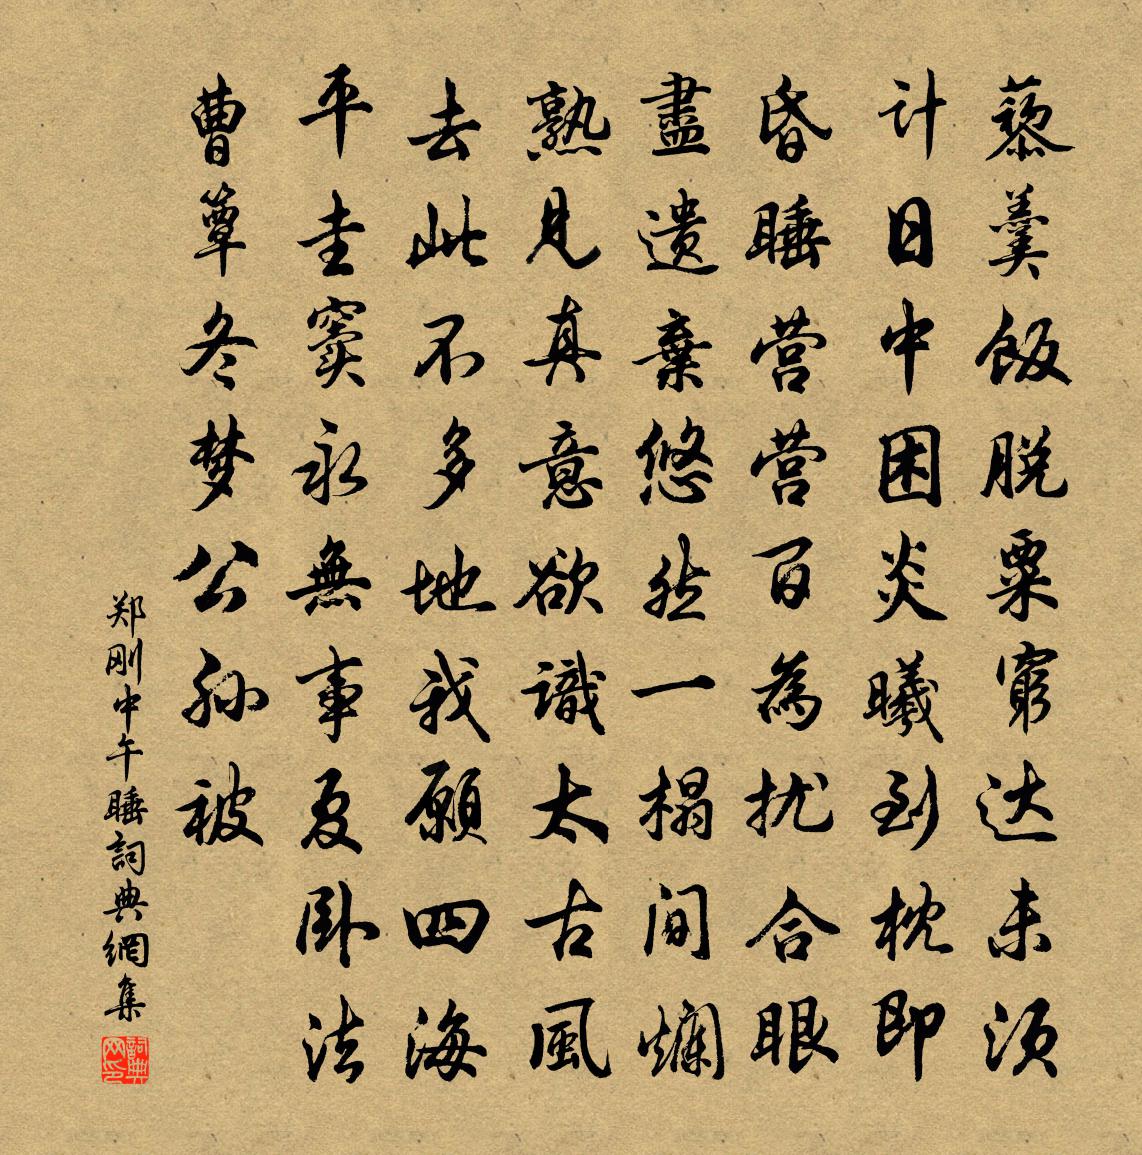 藜羹飯脱粟窮达未须
计日中困炎曦到枕即
昏睡营营百為扰合眼
盡遗棄悠然一榻间爛
熟見真意欲識太古風
去此不多地我願四海
平圭窦永無事夏卧法
曹簟冬梦公孙被
郑刚中午睡詞典網集
詞典网印